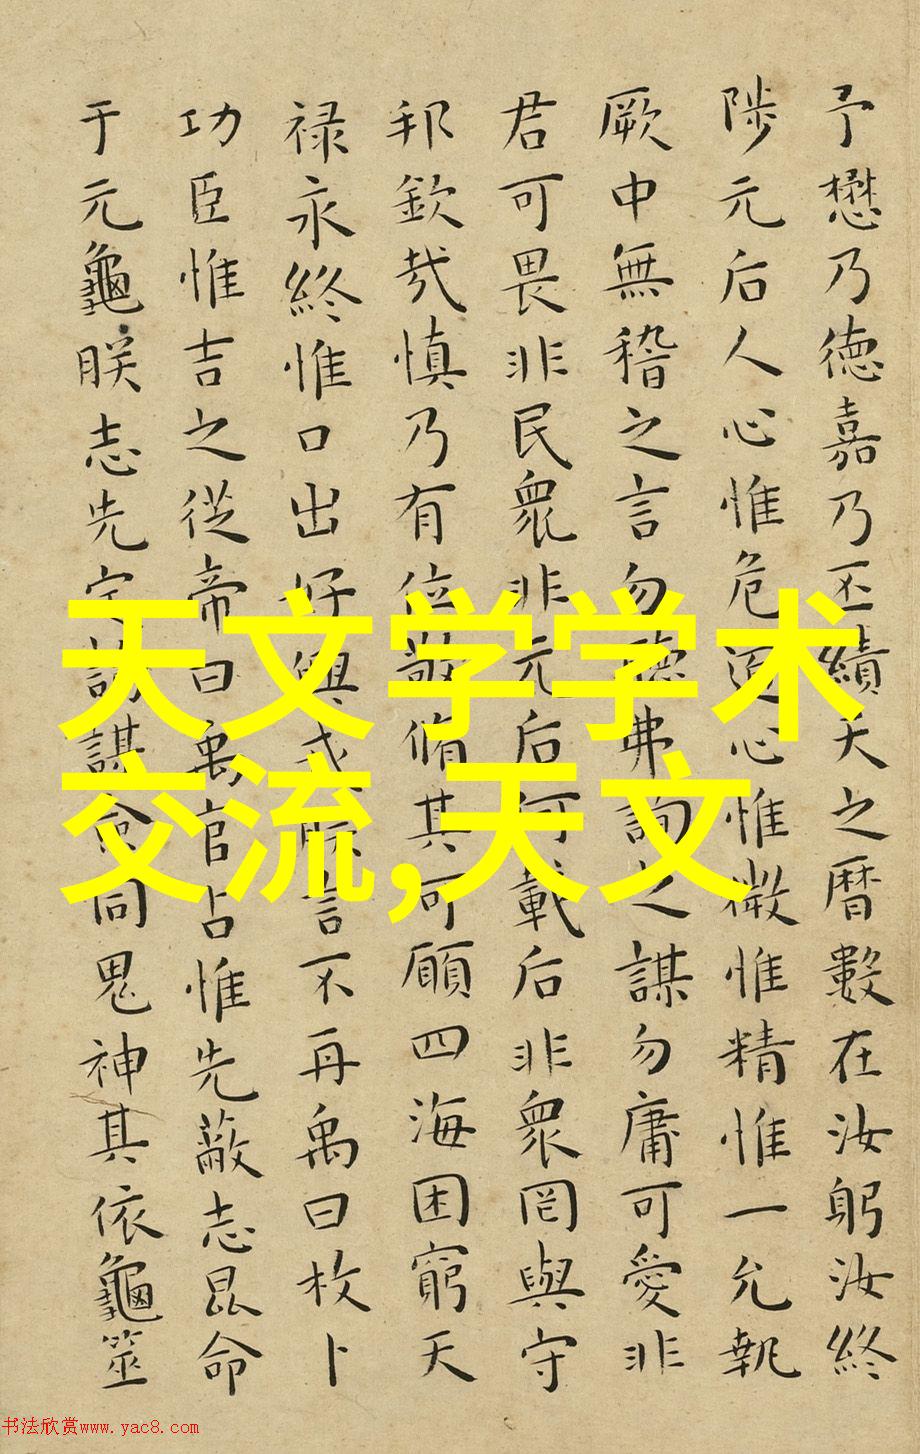 予懋乃德嘉乃丕績天之曆數在汝躬汝終
陟元后人心惟危道心惟微惟精惟一允執
厥中無稽之言勿聽弗詢之謀勿庸可愛非
君可畏非民衆非元后何載后非衆罔與守
邦欽哉慎乃有位敬脩其可願四海困窮天
禄永終惟口出好興戎朕言不再禹曰枚卜
功臣惟吉之從帝曰禹官占惟先蔽志昆命
于元龜朕志先定詢謀僉同鬼神其依龜筮
天文学学术
交流,天文
书法欣赏www.yac8.com